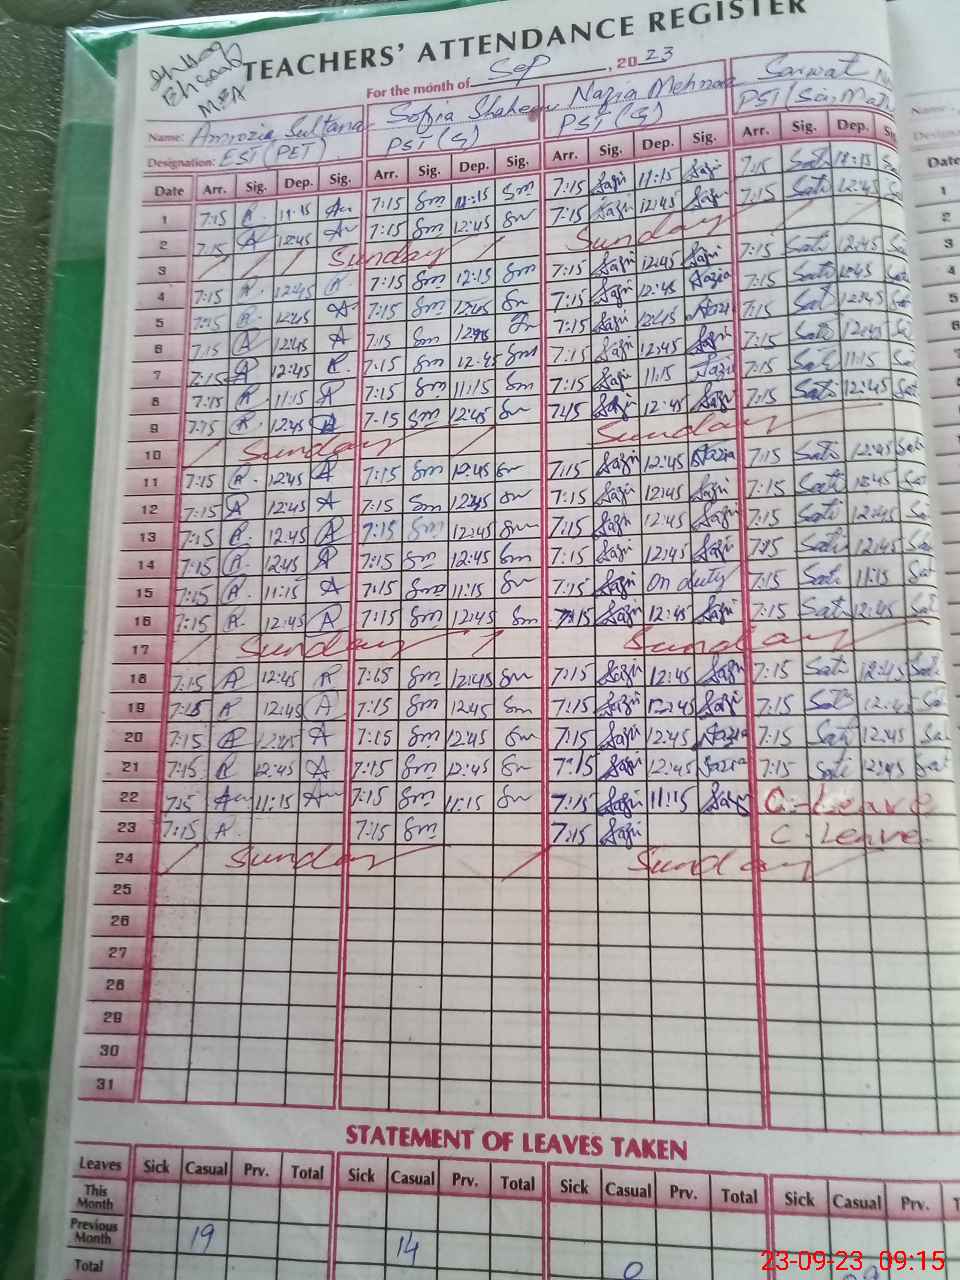 TEACHERS' ATTENDANCE REGISTER
For the month of Sep, 2023
MEA
Name: Amrozia Sultana Sofzia Shaheen Nazia Mehnaz Sarwat
Designation: EST (PET) PST (G) PST (G) PST (Sci, Math
Date Arr. Sig. Dep. Sig. Arr. Sig. Dep. Sig. Arr. Sig. Dep. Sig. Arr. Sig. Dep. Si
1 7:15 A. 11:15 Am 7:15 Sm 11:15 Sm 7:15 Sazii 11:15 Sazii 7:15 Sati 11:15 Sa
2 7:15 A 12:45 Am 7:15 Sm 12:45 Sm 7:15 Sazii 12:45 Sazii 7:15 Sati 12:45 Sa
3 Sunday Sunday
4 7:15 A. 12:45 A. 7:15 Sm 12:15 Sm 7:15 Sazii 12:45 Sazii 7:15 Sati 12:45 Sa
5 7:15 A. 12:45 A 7:15 Sm 12:45 Sm 7:15 Sazii 12:45 Nazia 7:15 Sati 12:45 Sat
6 7:15 A 12:45 A 7:15 Sm 12:45 Sm 7:15 Sazii 12:45 Nazi 7:15 Sat 12:45 Sa
7 7:15 A 12:45 A. 7:15 Sm 12:45 Sm 7:15 Sazii 12:45 Sazii 7:15 Sati 12:45 Sa
8 7:15 A 11:15 A 7:15 Sm 11:15 Sm 7:15 Sazii 11:15 Nazii 7:15 Sati 11:15 Sa
9 7:15 A. 12:45 A 7:15 Sm 12:45 Sm 7:15 Sazii 12:45 Sazii 7:15 Sati 12:45 Sat
10 Sunday Sunday
11 7:15 A. 12:45 A 7:15 Sm 12:45 Sm 7:15 Sazii 12:45 Nazia 7:15 Sati 12:45 Sat
12 7:15 A 12:45 A 7:15 Sm 12:45 Sm 7:15 Sazii 12:45 Sazii 7:15 Sati 12:45 Sat
13 7:15 A. 12:45 A 7:15 Sm 12:45 Sm 7:15 Sazii 12:45 Sazii 7:15 Sati 12:45 Sa
14 7:15 A. 12:45 A 7:15 Sm 12:45 Sm 7:15 Sazii 12:45 Sazii 7:15 Sati 12:45 Sa
15 7:15 A. 11:15 A 7:15 Sm 11:15 Sm 7:15 Sazii On duty 7:15 Sati 11:15 Sat
16 7:15 A. 12:45 A 7:15 Sm 12:45 Sm 7:15 Sazii 12:45 Sazii 7:15 Sati 12:45 Sat
17 Sunday Sunday
18 7:15 A 12:45 A 7:15 Sm 12:45 Sm 7:15 Sazii 12:45 Sazii 7:15 Sati 12:45 Sat
19 7:15 A 12:45 A 7:15 Sm 12:45 Sm 7:15 Sazii 12:45 Sazii 7:15 Sati 12:45 Sa
20 7:15 A 12:45 A 7:15 Sm 12:45 Sm 7:15 Sazii 12:45 Nazia 7:15 Sati 12:45 Sa
21 7:15 A 12:45 A 7:15 Sm 12:45 Sm 7:15 Sazii 12:45 Nazia 7:15 Sati 12:45 Sat
22 7:15 Am 11:15 Am 7:15 Sm 11:15 Sm 7:15 Sazii 11:15 Sazii C-Leave
23 7:15 A. 7:15 Sm 7:15 Sazii C-Leave
24 Sunday Sunday
25
26
27
28
29
30
31
STATEMENT OF LEAVES TAKEN
Leaves Sick Casual Prv. Total Sick Casual Prv. Total Sick Casual Prv. Total Sick Casual Prv.
This Month
Previous Month 19 14
Total 0
Date
1
2
3
4
5
23-09-23 09:15